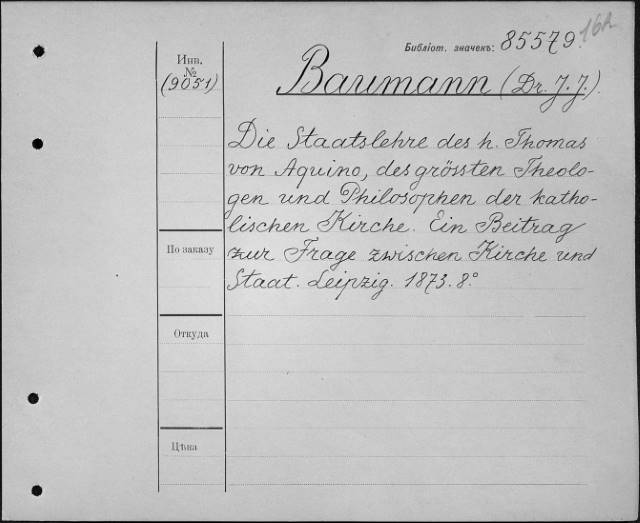 Библіот. значекъ: 85579 16A
Инв.
№
(9051)
Baumann (Dr. J. J.).
Die Staatslehre des h. Thomas
von Aquino, des grössten Theolo-
gen und Philosophen der katho-
lischen Kirche. Ein Beitrag
zur Frage zwischen Kirche und
Staat. Leipzig. 1873. 8.°
По заказу
Откуда
Цѣна